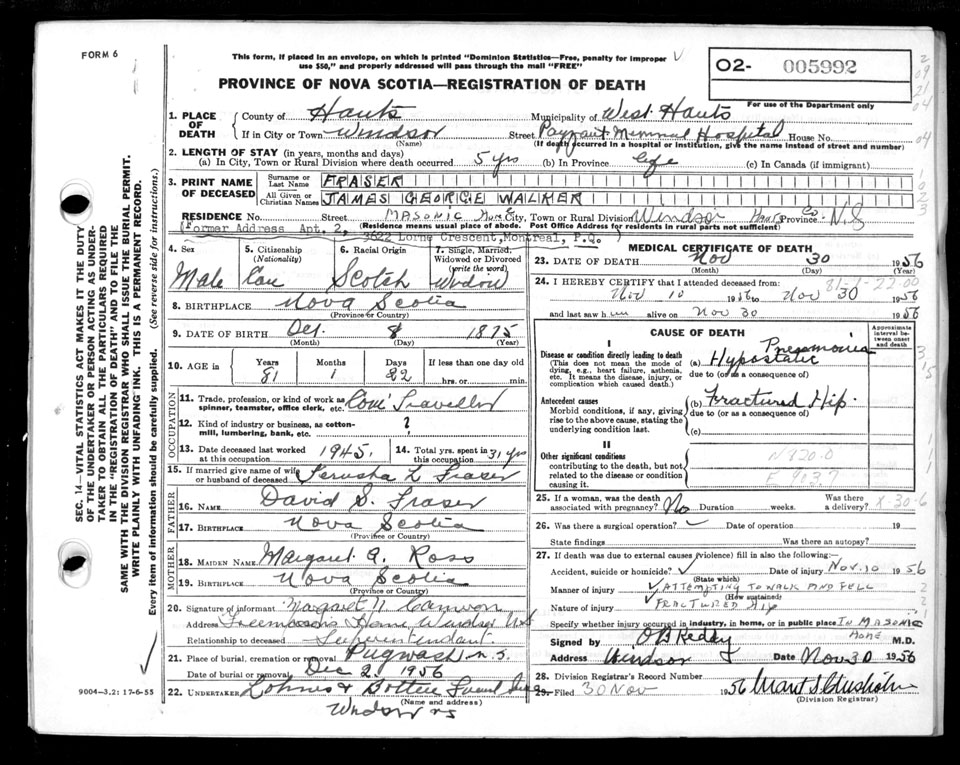 FORM 6
This form, if placed in an envelope, on which is printed "Dominion Statistics—Free, penalty for improper
use $50," and properly addressed will pass through the mail "FREE"
PROVINCE OF NOVA SCOTIA—REGISTRATION OF DEATH
02- 005992
For use of the Department only
1. PLACE OF DEATH
County of Hants Municipality of West Hants
If in City or Town Windsor Street Payzant Memorial Hospital House No.
(Name) (If death occurred in a hospital or institution, give the name instead of street and number)
2. LENGTH OF STAY (in years, months and days)
(a) In City, Town or Rural Division where death occurred 5 yrs (b) In Province Life (c) In Canada (if immigrant)
3. PRINT NAME OF DECEASED
Surname or Last Name FRASER
All Given or Christian Names JAMES GEORGE WALKER
RESIDENCE No. Street MASONIC Home City, Town or Rural Division Windsor Hants Co Province N.S
(Residence means usual place of abode. Post Office Address for residents in rural parts not sufficient)
(Former Address Apt. 2, 3622 Lorne Crescent, Montreal, P.Q. )
4. Sex Male
5. Citizenship (Nationality) Can
6. Racial Origin Scotch
7. Single, Married, Widowed or Divorced (write the word) Widow
8. BIRTHPLACE Nova Scotia
(Province or Country)
9. DATE OF BIRTH Oct. 8 1875
(Month) (Day) (Year)
10. AGE in Years 81 Months 1 Days 22 If less than one day old
hrs. or min.
OCCUPATION
11. Trade, profession, or kind of work as spinner, teamster, office clerk, etc. Com' Traveller
12. Kind of industry or business, as cotton-mill, lumbering, bank, etc. ?
13. Date deceased last worked at this occupation 1945. 14. Total yrs. spent in this occupation 31 yrs
15. If married give name of wife or husband of deceased Jerusha L Fraser
FATHER
16. NAME David S. Fraser
17. BIRTHPLACE Nova Scotia
(Province or Country)
MOTHER
18. MAIDEN NAME Margaret A. Ross
19. BIRTHPLACE Nova Scotia
(Province or Country)
20. Signature of informant Margaret N. Cameron
Address Freemasons Home Windsor N.S
Relationship to deceased Superintendant
21. Place of burial, cremation or removal Pugwash N.S.
Date of burial or removal Dec 2, 1956
22. UNDERTAKER Lohnes &
(Name and address)
Windsor NS
9004—3.2: 17-6-55
MEDICAL CERTIFICATE OF DEATH
23. DATE OF DEATH Nov 30 1956
(Month) (Day) (Year)
24. I HEREBY CERTIFY that I attended deceased from:
Nov 10 1956 to Nov 30 1956
and last saw him alive on Nov 30 1956
CAUSE OF DEATH
Approximate interval between onset and death
I
Disease or condition directly leading to death
(This does not mean the mode of dying, e.g., heart failure, asthenia, etc. It means the disease, injury, or complication which caused death.)
(a) Hypostatic Pneumonia
due to (or as a consequence of)
Antecedent causes
Morbid conditions, if any, giving rise to the above cause, stating the underlying condition last.
(b) Fractured Hip.
due to (or as a consequence of)
(c)
II
Other significant conditions
contributing to the death, but not related to the disease or condition causing it.
N 820.0
E 903.7
25. If a woman, was the death associated with pregnancy? No Duration weeks. Was there a delivery?
X-30-6
26. Was there a surgical operation? Date of operation 19
State findings Was there an autopsy?
27. If death was due to external causes (violence) fill in also the following:—
Accident, suicide or homicide? Date of injury Nov. 10 1956
(State which)
Manner of injury ATTEMPTING TO WALK AND FELL
(How sustained)
Nature of injury FRACTURED Hip
Specify whether injury occurred in industry, in home, or in public place IN MASONIC HOME
Signed by O B Keddy M.D.
Address Windsor Date Nov 30 1956
28. Division Registrar's Record Number
29. Filed 30 Nov 1956
(Division Registrar)
SEC. 14—VITAL STATISTICS ACT MAKES IT THE DUTY
OF THE UNDERTAKER OR PERSON ACTING AS UNDER-
TAKER TO OBTAIN ALL THE PARTICULARS REQUIRED
IN THE "REGISTRATION OF DEATH" AND TO FILE THE
SAME WITH THE DIVISION REGISTRAR WHO SHALL ISSUE THE BURIAL PERMIT.
WRITE PLAINLY WITH UNFADING INK. THIS IS A PERMANENT RECORD.
Every item of information should be carefully supplied. (See reverse side for instructions.)